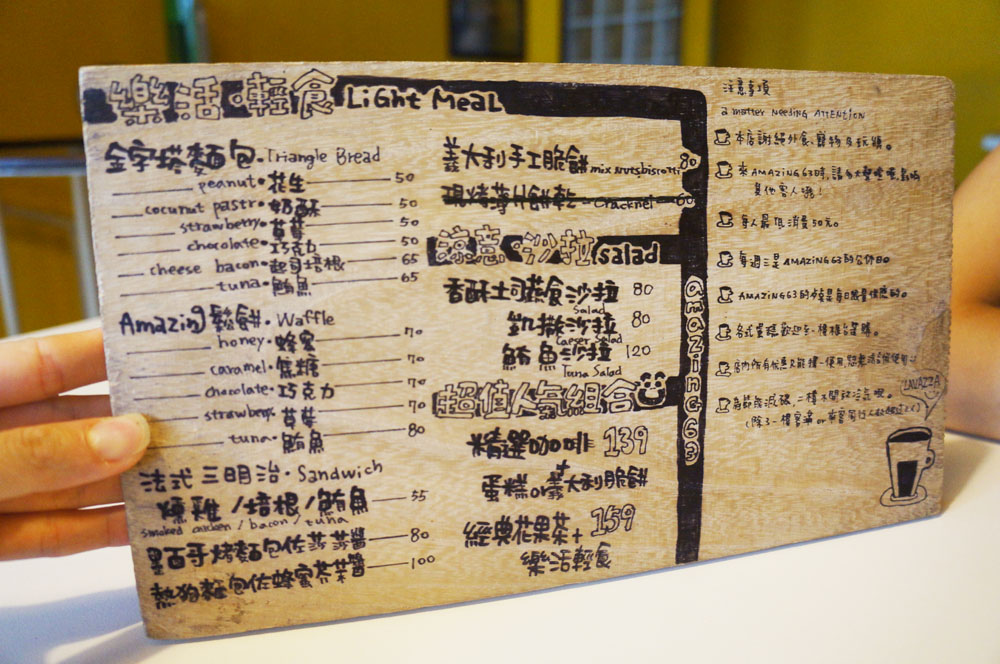 樂活·輕食 LiGht MeaL
金字塔麵包·Triangle Bread
peanut·花生 50
coconut pastr·奶酥 50
strawberry·草莓 50
chocolate·巧克力 50
cheese bacon·起司培根 65
tuna·鮪魚 65
Amazing鬆餅·Waffle
honey·蜂蜜 70
caramel·焦糖 70
chocolate·巧克力 70
strawberry·草莓 70
tuna·鮪魚 80
法式三明治·Sandwich
燻雞/培根/鮪魚 55
smoked chicken/bacon/tuna
墨西哥烤麵包佐莎莎醬 80
熱狗麵包佐蜂蜜芥茉醬 100
義大利手工脆餅 mix nutsbiscotti 80
現烤薄片餅乾 Cracknel 60
涼意·沙拉 salad
香酥土司蔬食沙拉 80
Salad
凱撒沙拉 80
Caeser Salad
鮪魚沙拉 120
Tuna Salad
超個人氣組合
精選咖啡 139
+
蛋糕or義大利脆餅
經典花果茶+ 159
樂活輕食
amazing63
注意事項
a matter NeediNG AttENtioN
本店謝絕外食、寵物及玩牌。
來AMAZiNG63時,請勿大聲喧嘩
其他客人唷!
每人最低消費50元。
每週三是AMAZiNG63的公休日。
AMAZiNG63的
店內所有優惠只能擇一使用
為節能減碳,二樓不開放
LAVAZZA